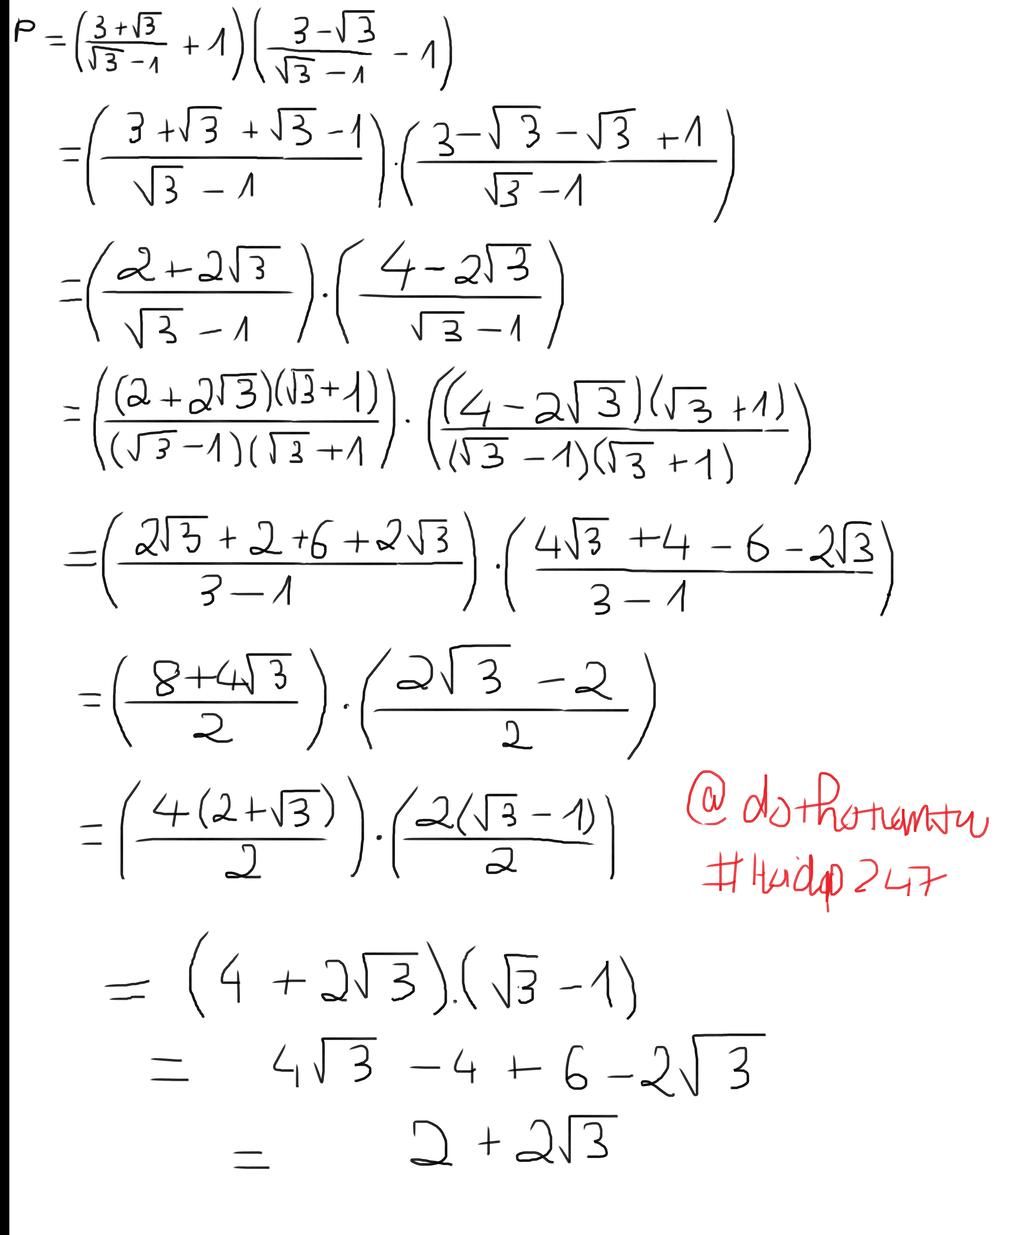 P = ((3+√3)/(√3-1) + 1)((3-√3)/(√3-1) - 1)
= ((3+√3+√3-1)/(√3-1)).((3-√3-√3+1)/(√3-1))
= ((2+2√3)/(√3-1)).((4-2√3)/(√3-1))
= (((2+2√3)(√3+1))/((√3-1)(√3+1)).(((4-2√3)(√3+1))/((√3-1)(√3+1)))
= ((2√3+2+6+2√3)/(3-1)).((4√3+4-6-2√3)/(3-1))
= ((8+4√3)/2).((2√3-2)/2)
= ((4(2+√3))/2).((2(√3-1))/2)
#Huidp247
= (4+2√3).(√3-1)
= 4√3-4+6-2√3
= 2+2√3